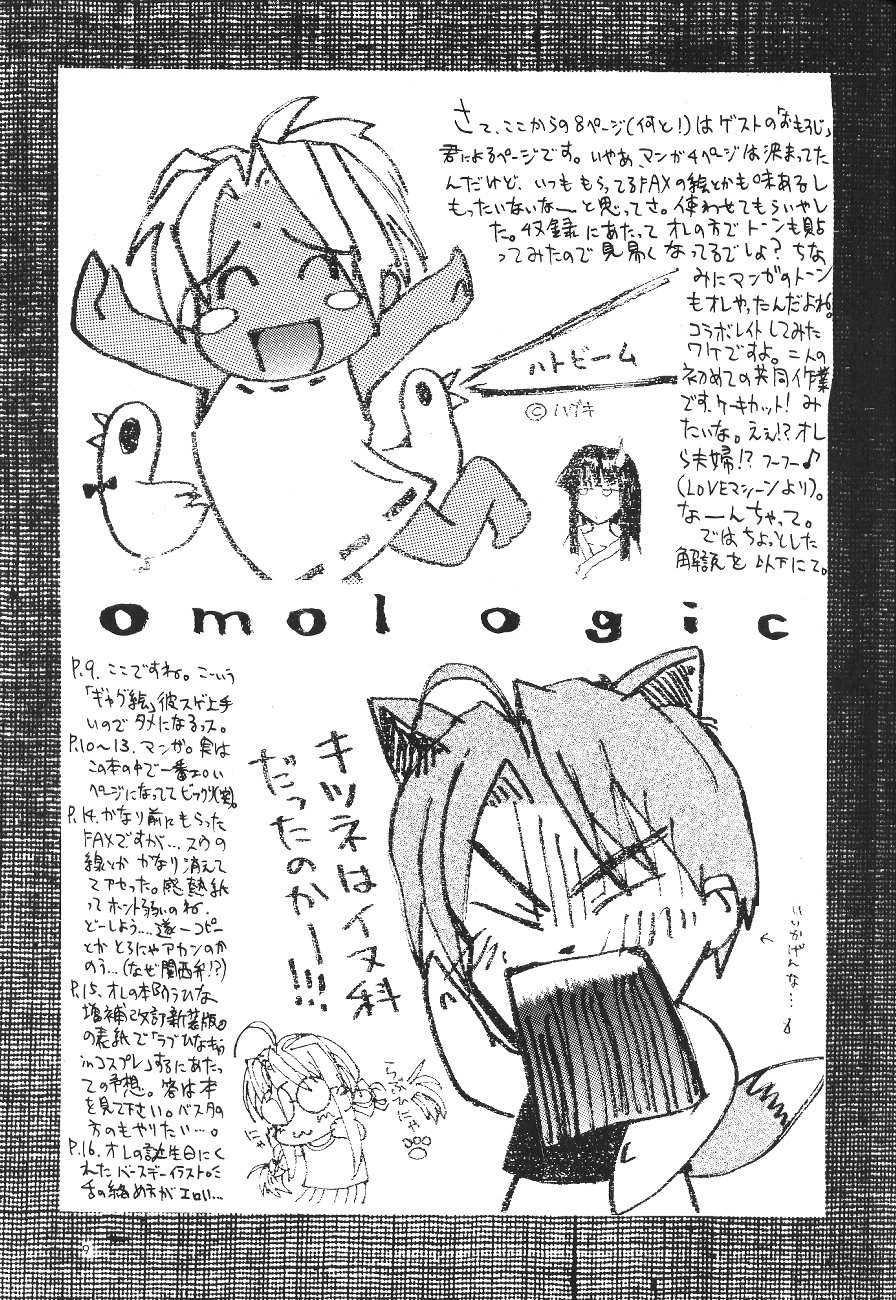 さて、ここからの8ページ(何と!)はゲストの「おもろじ」
君によるページです。いやあ、マンガ4ページは決まってた
んだけど、いつももらってるFAXの絵とかも味あるし
もったいないなーと思ってさ。使わせてもらいやし
た。収録にあたってオレの方でトーンも貼
ってみたので見易くなってるでしょ?ちな
みにマンガのトーン
もオレやったんだよね。
コラボレイトしてみた
ワケですよ。二人の
初めての共同作業
です、ケーキカット!み
たいな。えぇ!?オレ
ら夫婦!?フーフー♪
(LOVEマシーンより)。
なーんちゃって。
ではちょっとした
解説を以下にて。
ハトビーム
© ハヅキ
omologic
P.9. ここですね。こーいう
「ギャグ絵」彼スゲ上手
いのでタメになるっス。
P.10〜13. マンガ。実は
この本の中で一番エロい
ページになっててビックリ(笑)。
P.14. かなり前にもらった
FAXですが…スウの
線とかかなり消えて
てアセった。感熱紙
ってホント弱いのね、
どーしよう…、逐一コピー
とかとるにゃアカンのか
のう…(なぜ関西弁!?)
P.15. オレの本「うらひな
増補改訂新装版」
の表紙で「ラブひなキャラ
inコスプレ」するにあたっ
ての予想。答は本
を見て下さい。ベスタの
方のもやりたい…。
P.16. オレの誕生日にく
れたバースデーイラスト。
舌の絡め方がエロい…
キツネはイヌ科
だったのかー!!!
いいかげんな…
らぶひにゃ
にゃ
9